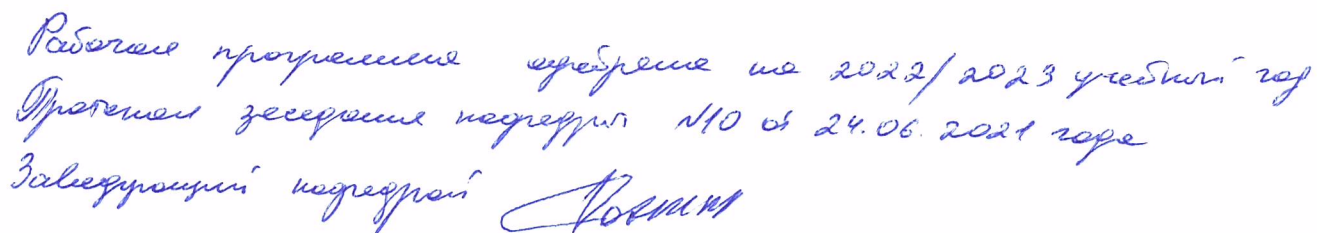 Рабочая программа одобрена на 2022/2023 учебный год
Протокол заседания кафедры №10 от 24.06.2021 года
Заведующий кафедрой